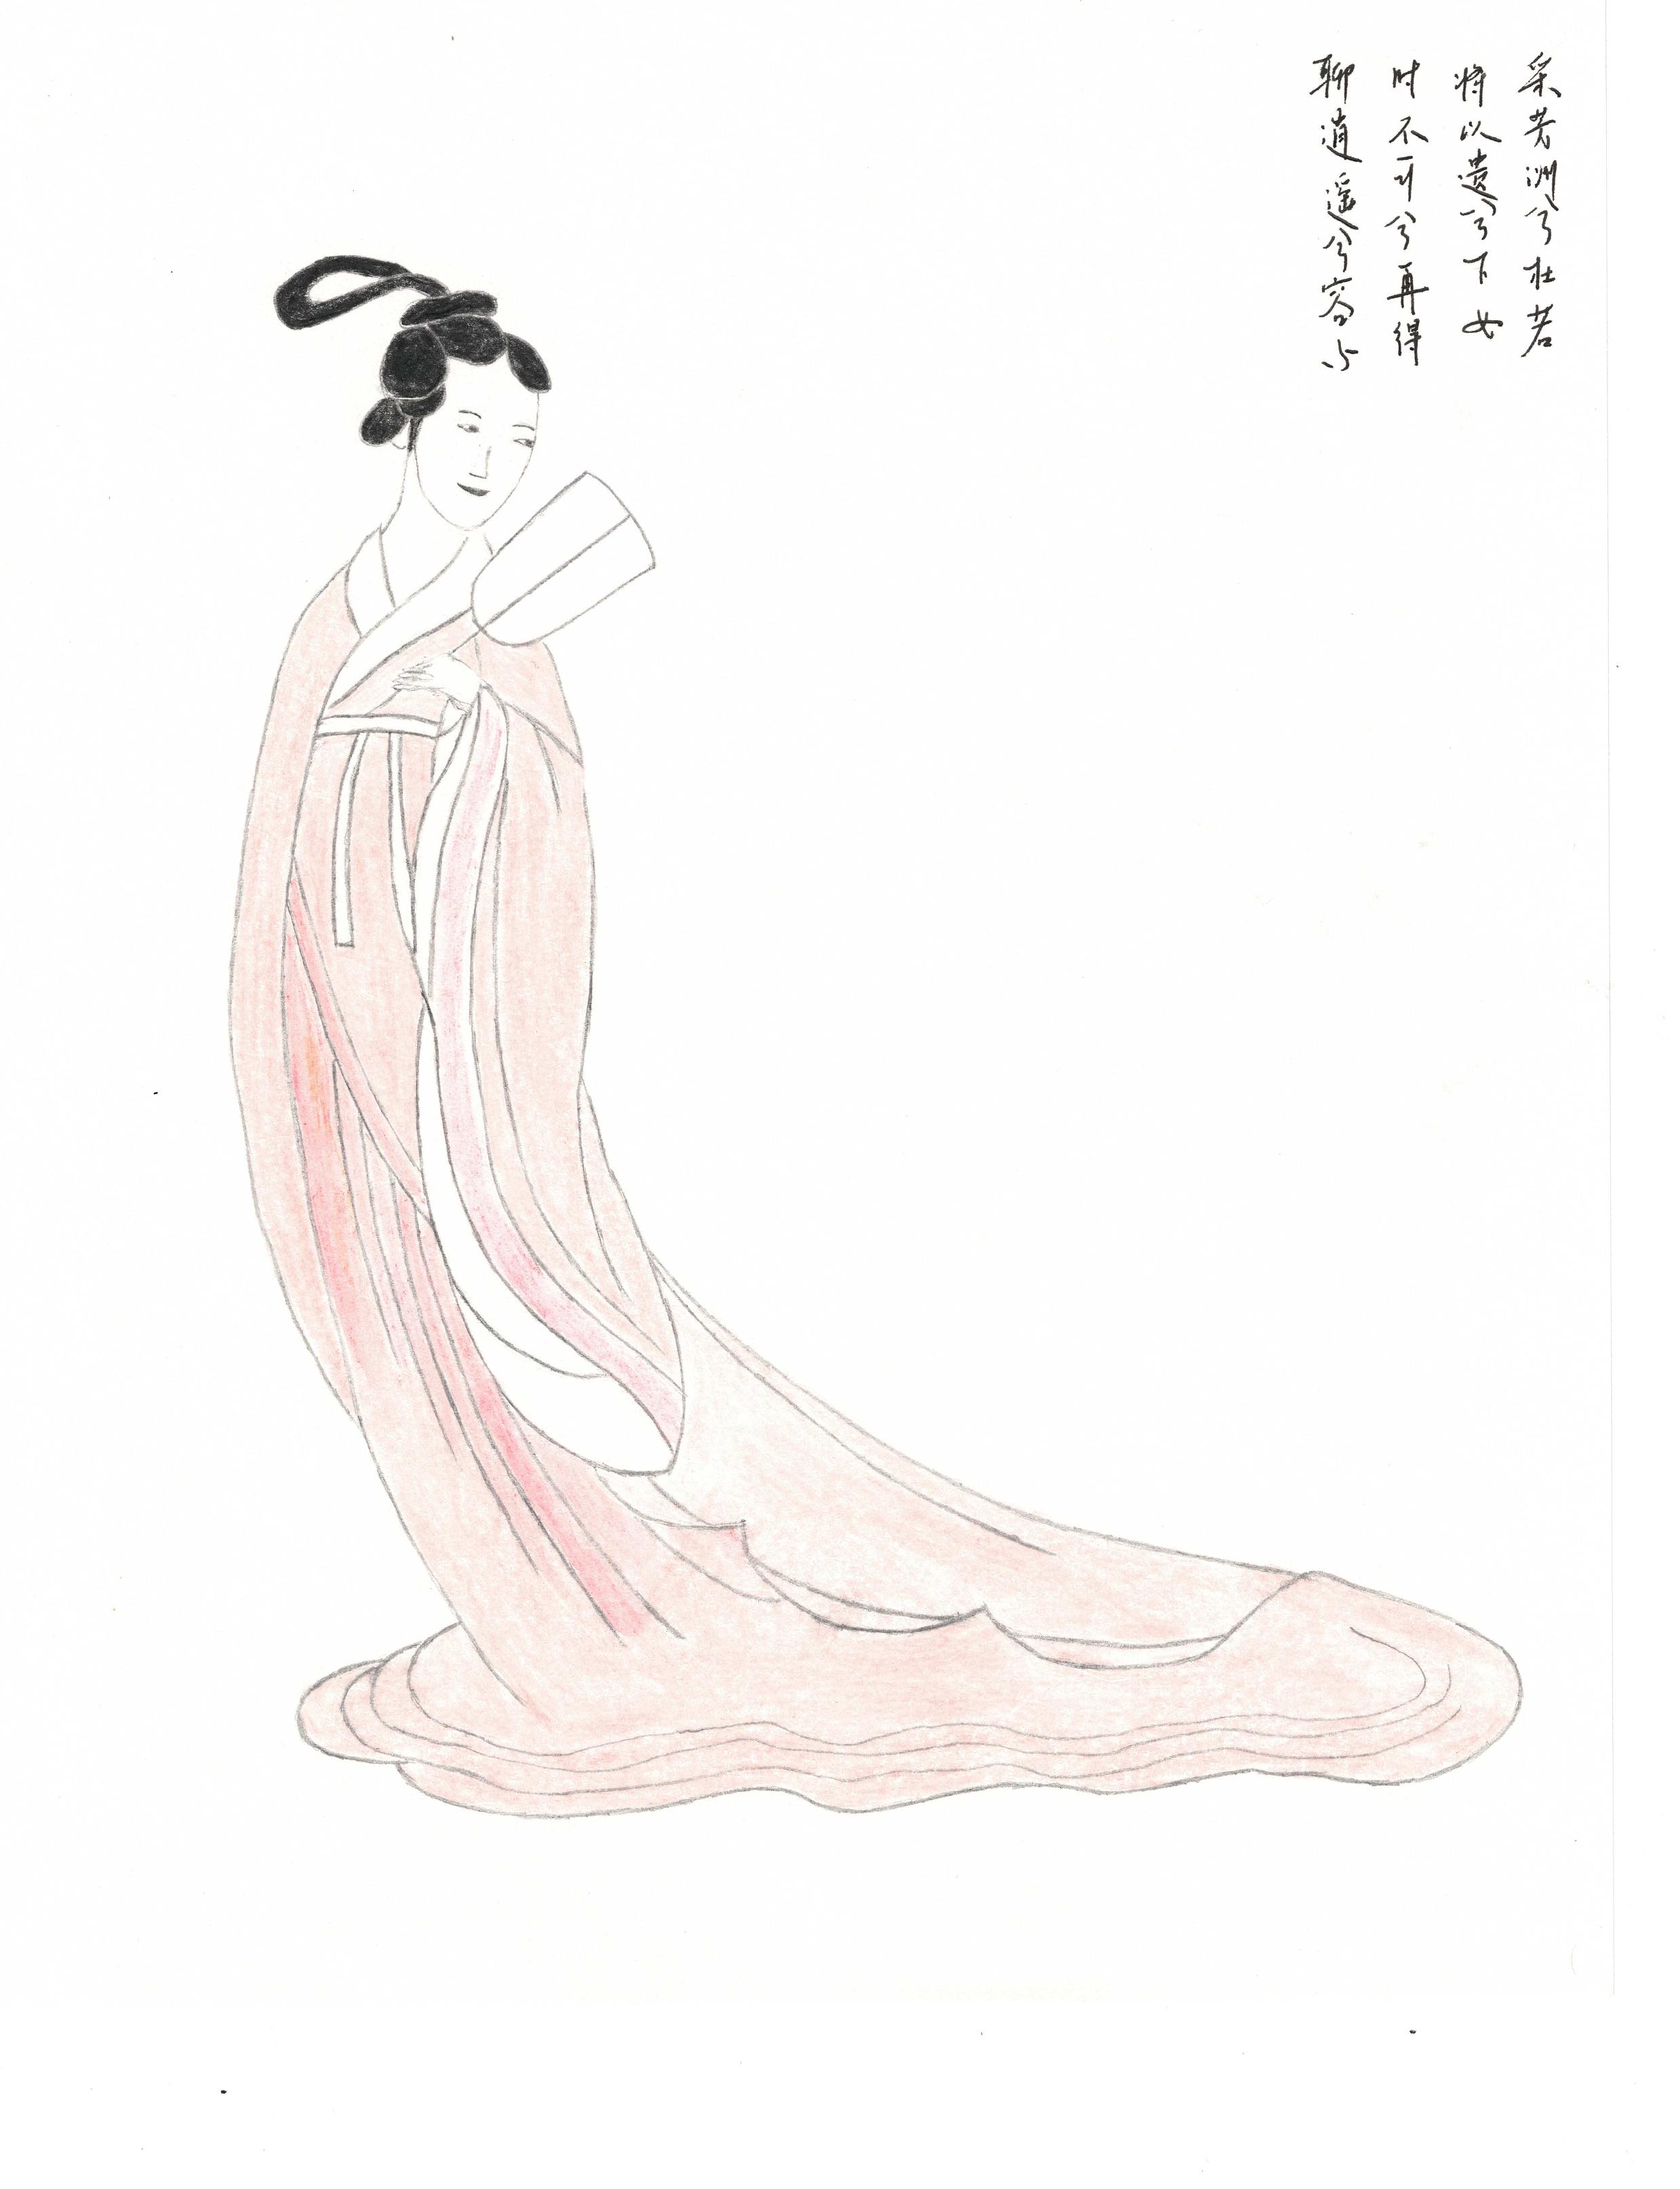 采芳洲兮杜若
将以遗兮下女
时不可兮再得
聊逍遥兮容与